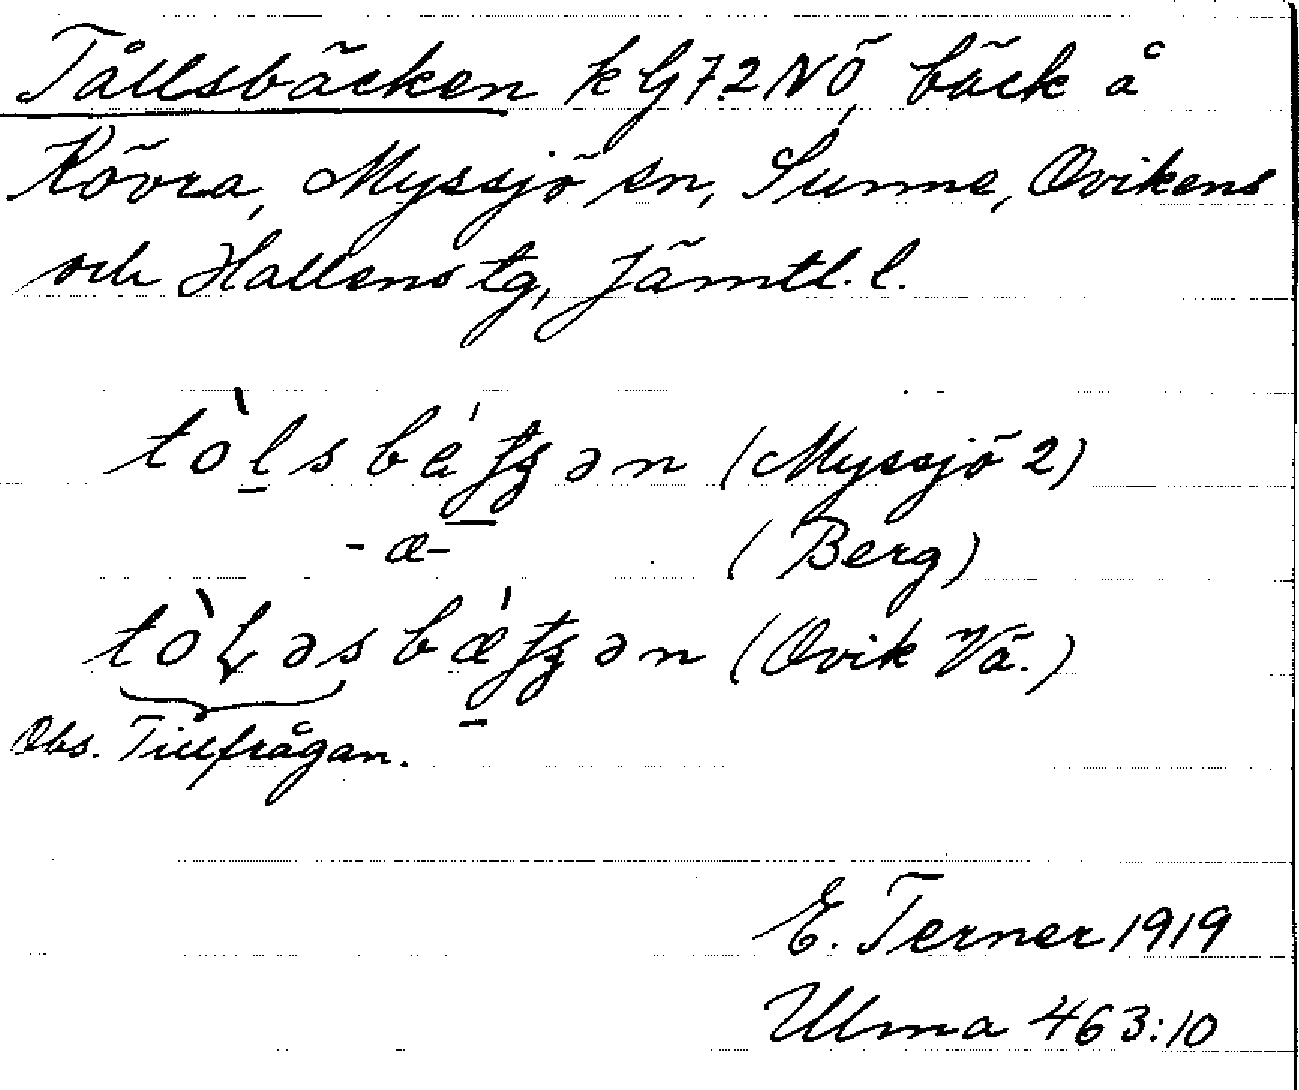 Tållsbäcken k G72NÖ, bäck å
Kövra, Myssjö sn, Sunne, Ovikens
och Hallens tg, Jämtl. l.
tòḻsbátʒən (Myssjö 2)
-æ- (Berg)
tòɫəsbǽtʒən (Ovik Vä.)
Obs. Tillfrågan.
E. Terner 1919
Ulma 463:10